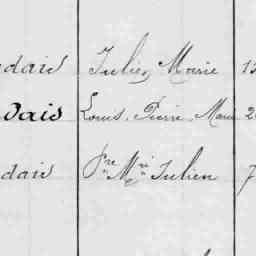 dais Julien Marie 13
dais Louis, Pierre, Marie 2
dais Pre Mrie Julien 7